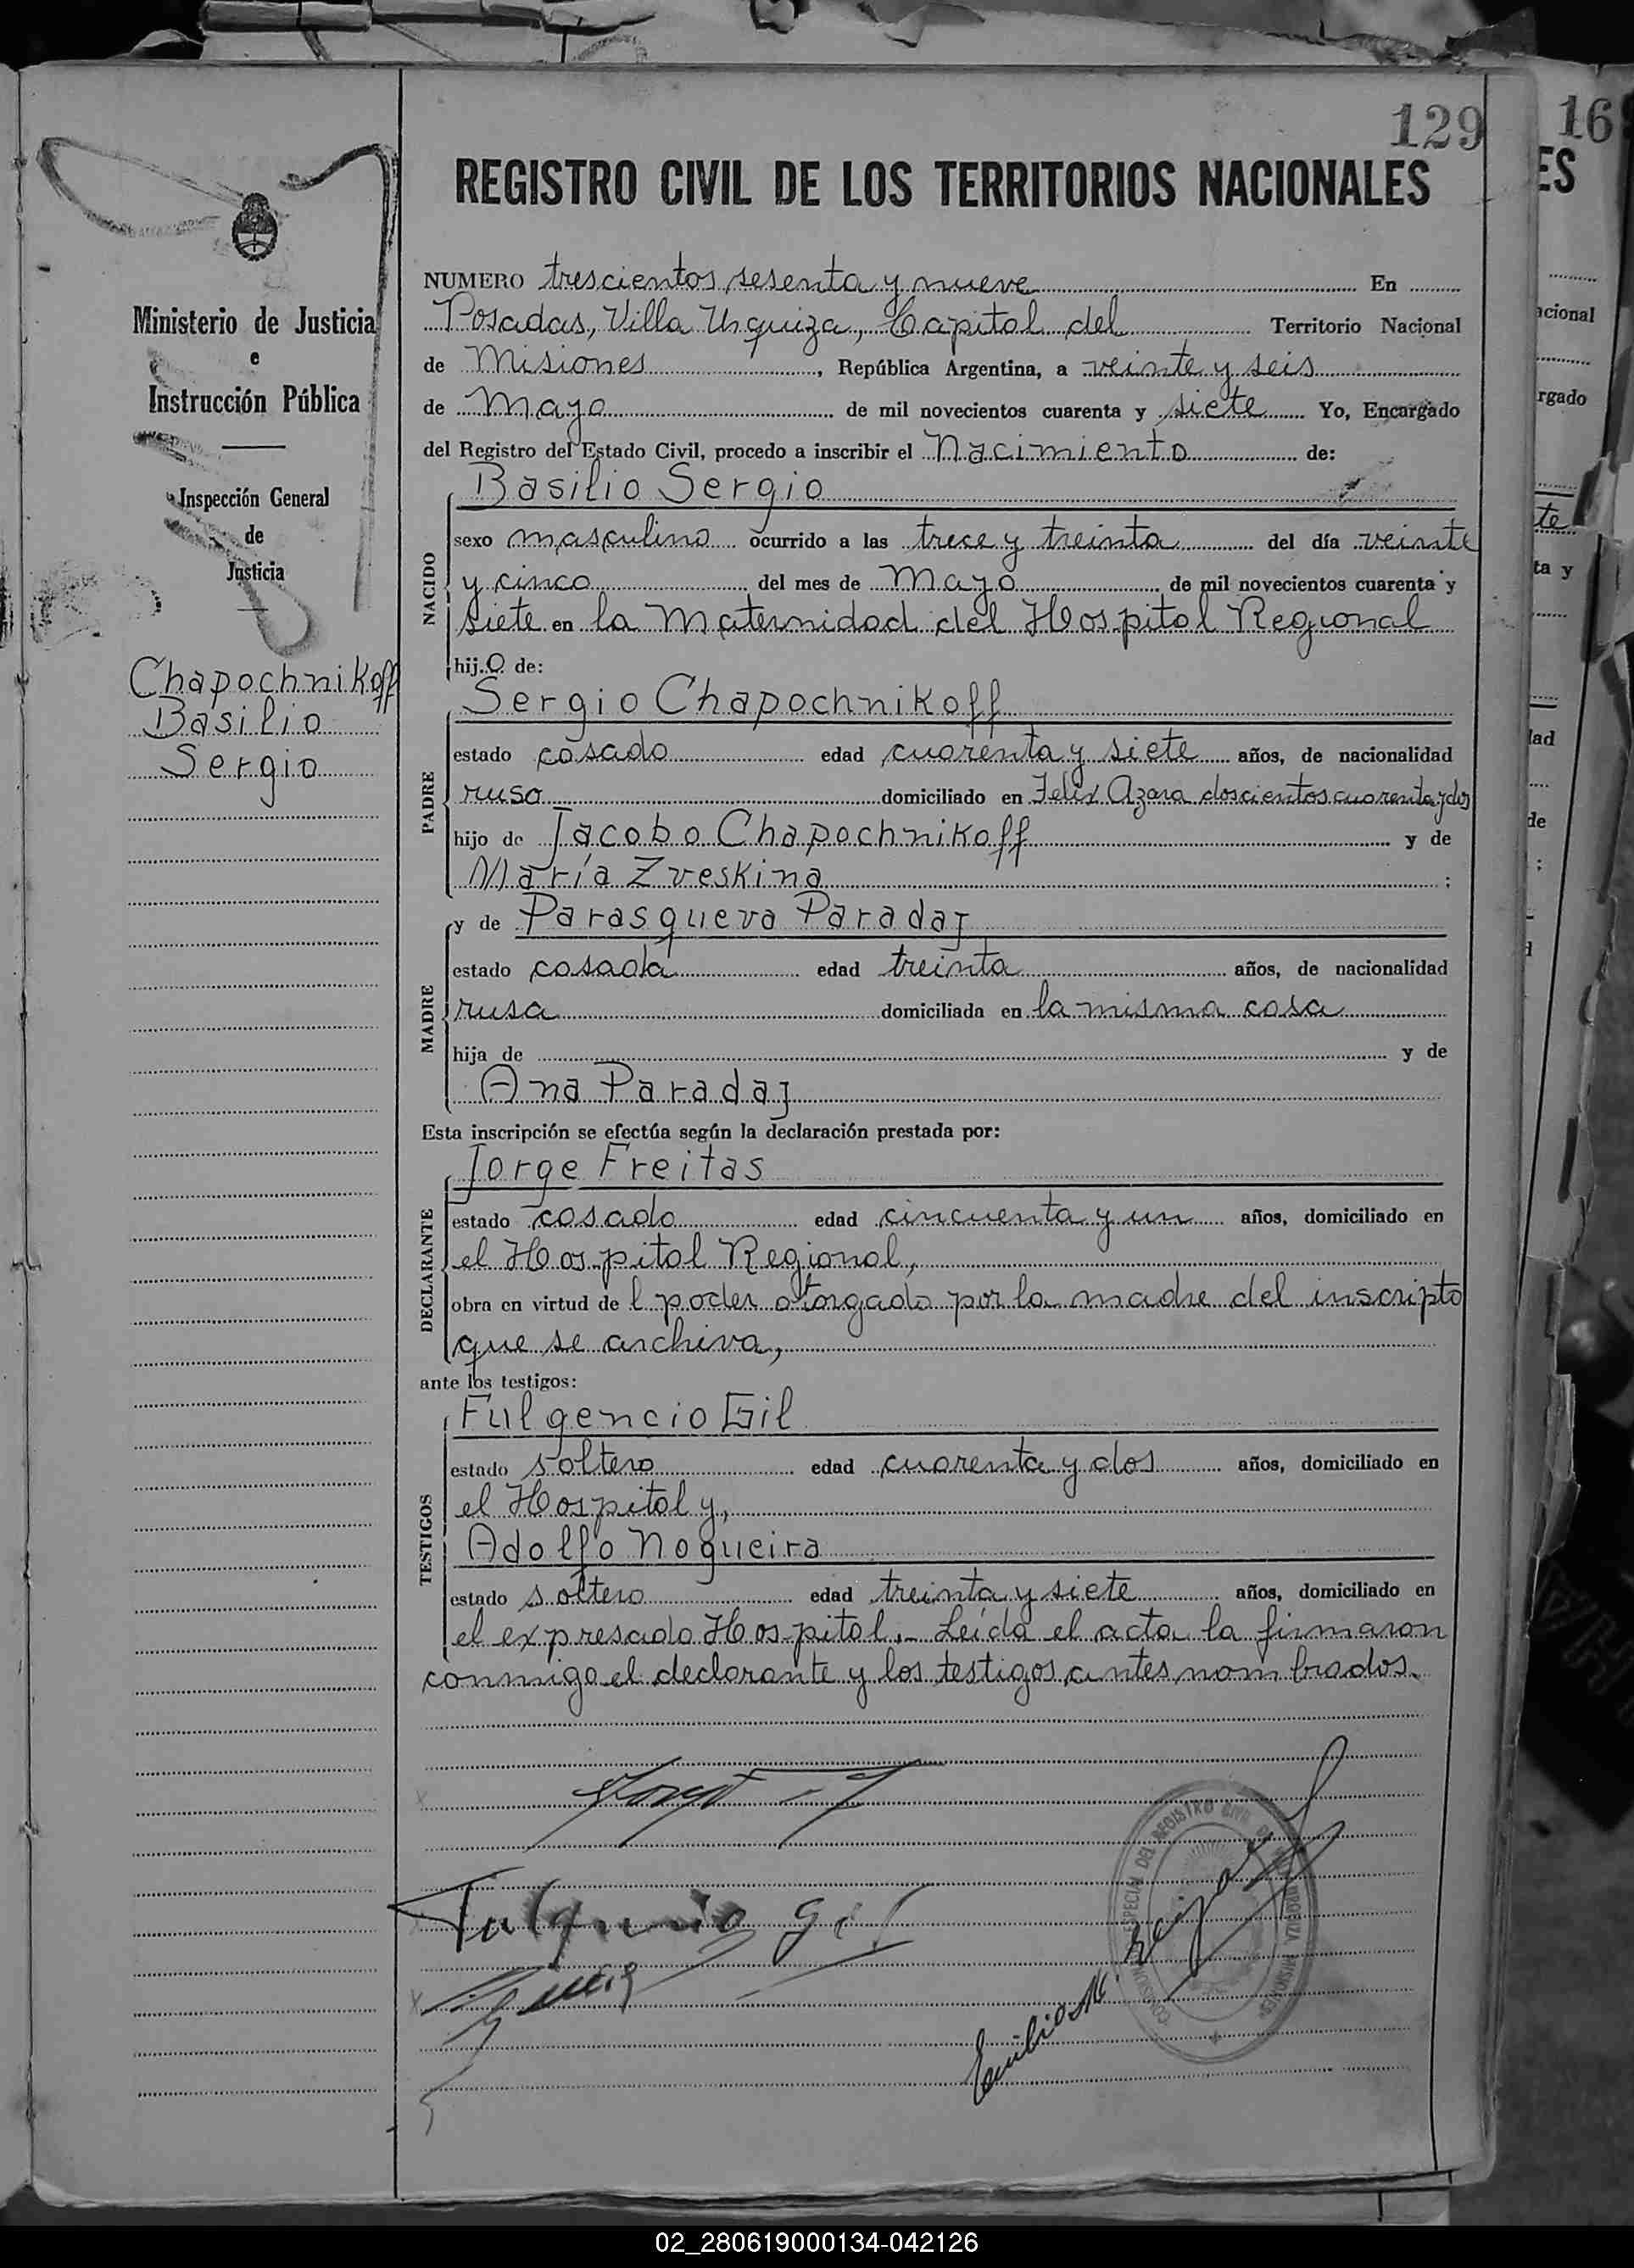 129
16
REGISTRO CIVIL DE LOS TERRITORIOS NACIONALES
ES
Ministerio de Justicia
e
Instrucción Pública
Inspección General
de
Justicia
Chapochnikoff
Basilio
Sergio
NUMERO trescientos sesenta y nueve En
Posadas, Villa Urquiza, Capital del Territorio Nacional
de Misiones, República Argentina, a veinte y seis
de Mayo de mil novecientos cuarenta y siete Yo, Encargado
del Registro del Estado Civil, procedo a inscribir el Nacimiento de:
NACIDO
Basilio Sergio
sexo masculino ocurrido a las trece y treinta del día veinte
y cinco del mes de Mayo de mil novecientos cuarenta y
siete en la Maternidad del Hospital Regional
hijo de:
PADRE
Sergio Chapochnikoff
estado casado edad cuarenta y siete años, de nacionalidad
ruso domiciliado en Felix Azara doscientos cuarenta y dos
hijo de Jacobo Chapochnikoff y de
María Zveskina ;
MADRE
y de Parasqueva Paradaj
estado casada edad treinta años, de nacionalidad
rusa domiciliada en la misma casa
hija de y de
Ana Paradaj
Esta inscripción se efectúa según la declaración prestada por:
DECLARANTE
Jorge Freitas
estado casado edad cincuenta y un años, domiciliado en
el Hospital Regional,
obra en virtud de l poder otorgado por la madre del inscripto
que se archiva,
ante los testigos:
TESTIGOS
Fulgencio Gil
estado soltero edad cuarenta y dos años, domiciliado en
el Hospital y,
Adolfo Nogueira
estado soltero edad treinta y siete años, domiciliado en
el expresado Hospital.- Leída el acta la firmaron
conmigo el declarante y los testigos antes nombrados.
Fulgencio Gil
Emilio M.
REGISTRO CIVIL
02_280619000134-042126